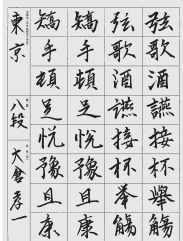 弦歌酒讌接杯舉觴
弦歌酒讌接杯舉觴
矯手頓足悦豫且康
矯手頓足悦豫且康
東京 八段 大倉孝一